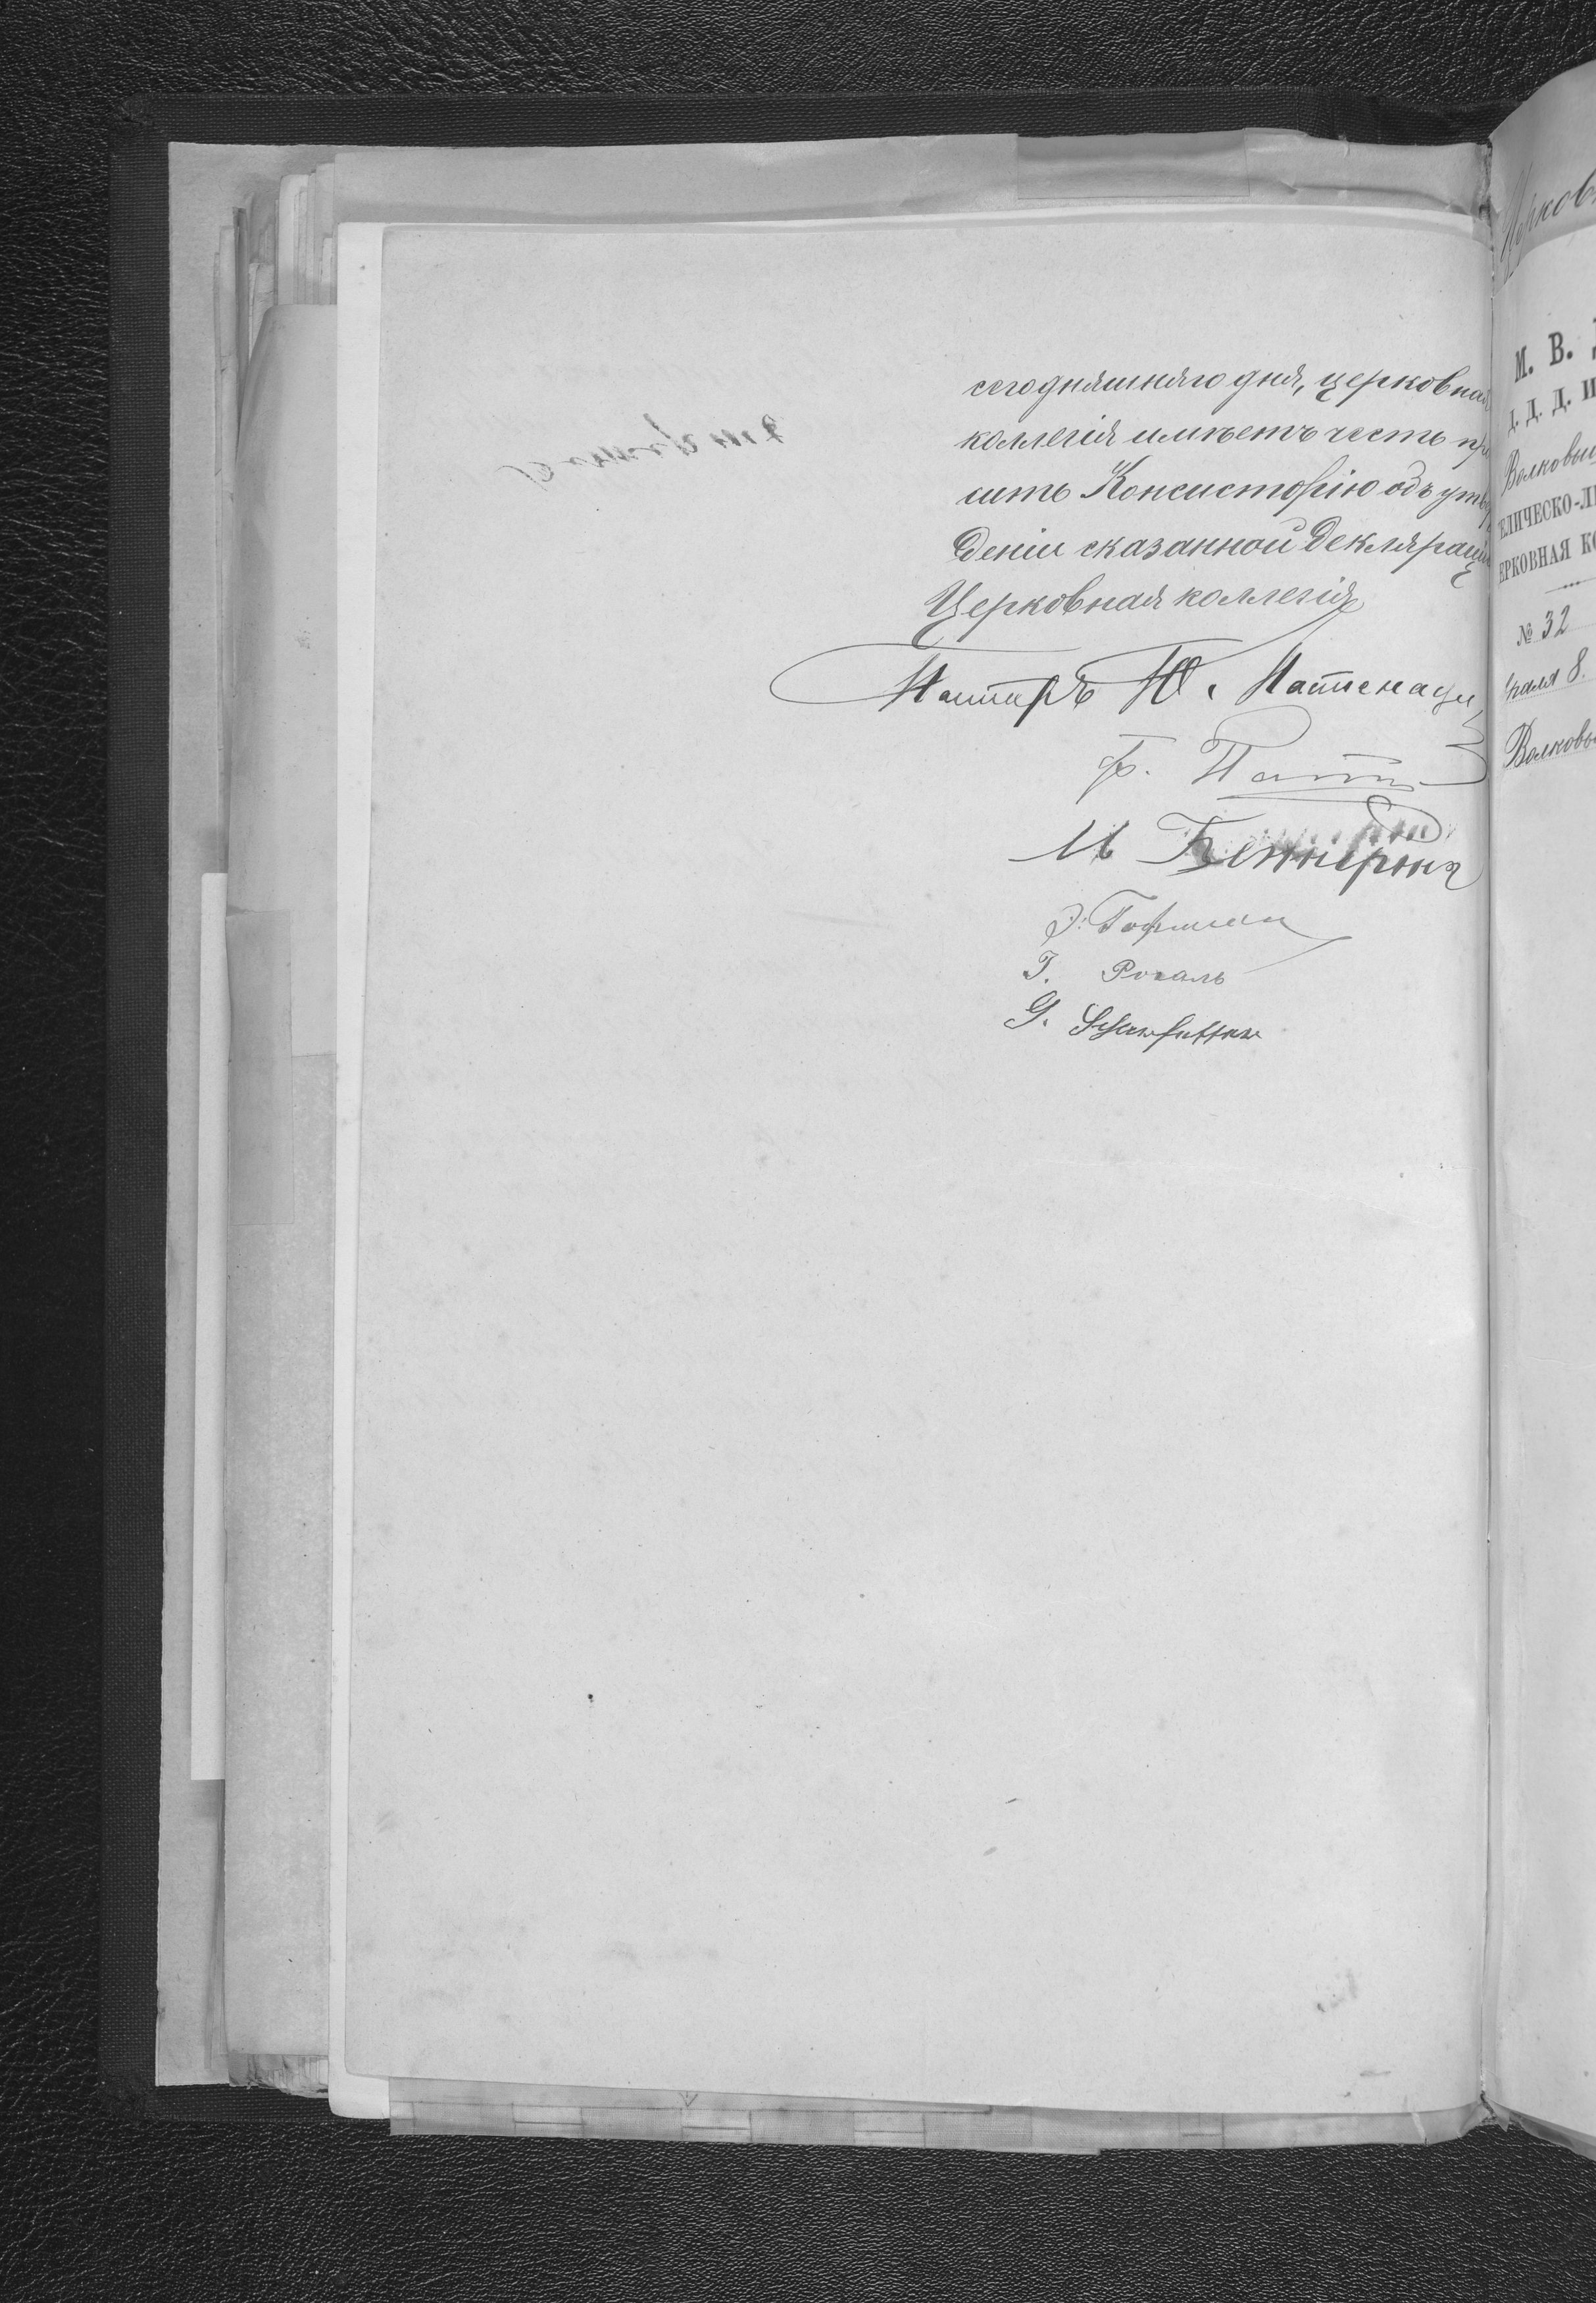 сегодняшняго дня, церковная
коллегія имѣетъ честь пр
сить Консисторію объ утвер
деніи сказанной деклярацiи
Церковная коллегія
Пасторъ Ю.
Ф.
Э. Гофман
І. Рогаль
G.
Церков
М. В. Д
Д. Д. Д. И
Волковыш
ЕЛИЧЕСКО-Л
ЕРКОВНАЯ КО
№ 32
раля 8.
Волковы